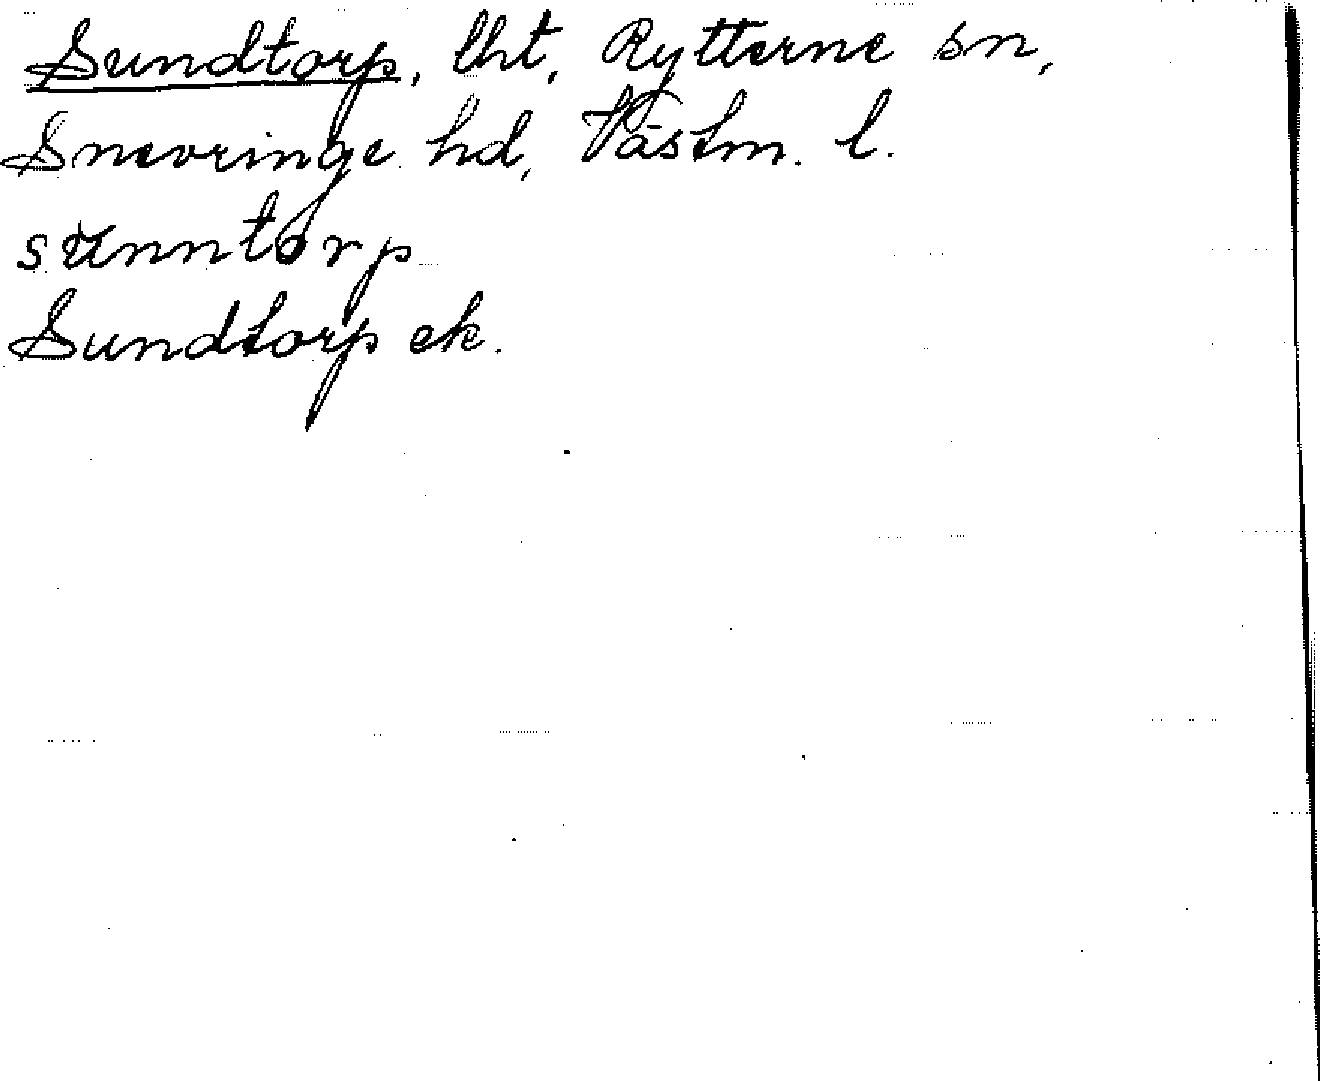 Sundtorp, lht, Rytterne sn,
Snevringe hd, Västm. l.
sunntorp
Sundtorp ek.